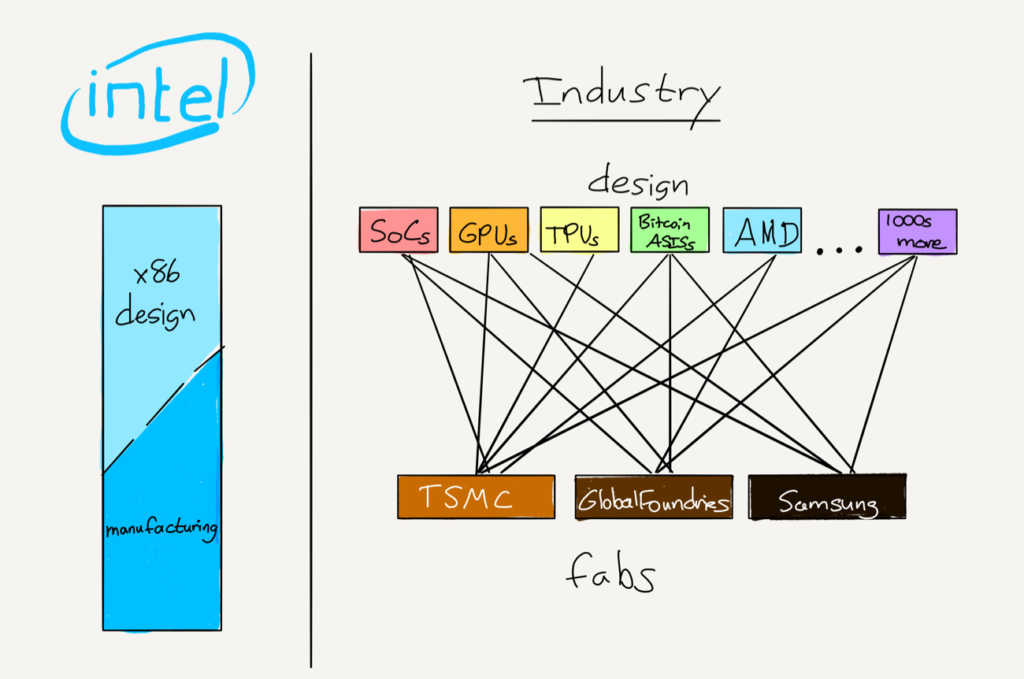 intel
x86
design
manufacturing
Industry
design
SoCs
GPUs
TPUs
Bitcoin
ASISs
AMD
...
1000s
more
TSMC
GlobalFoundries
Samsung
fabs